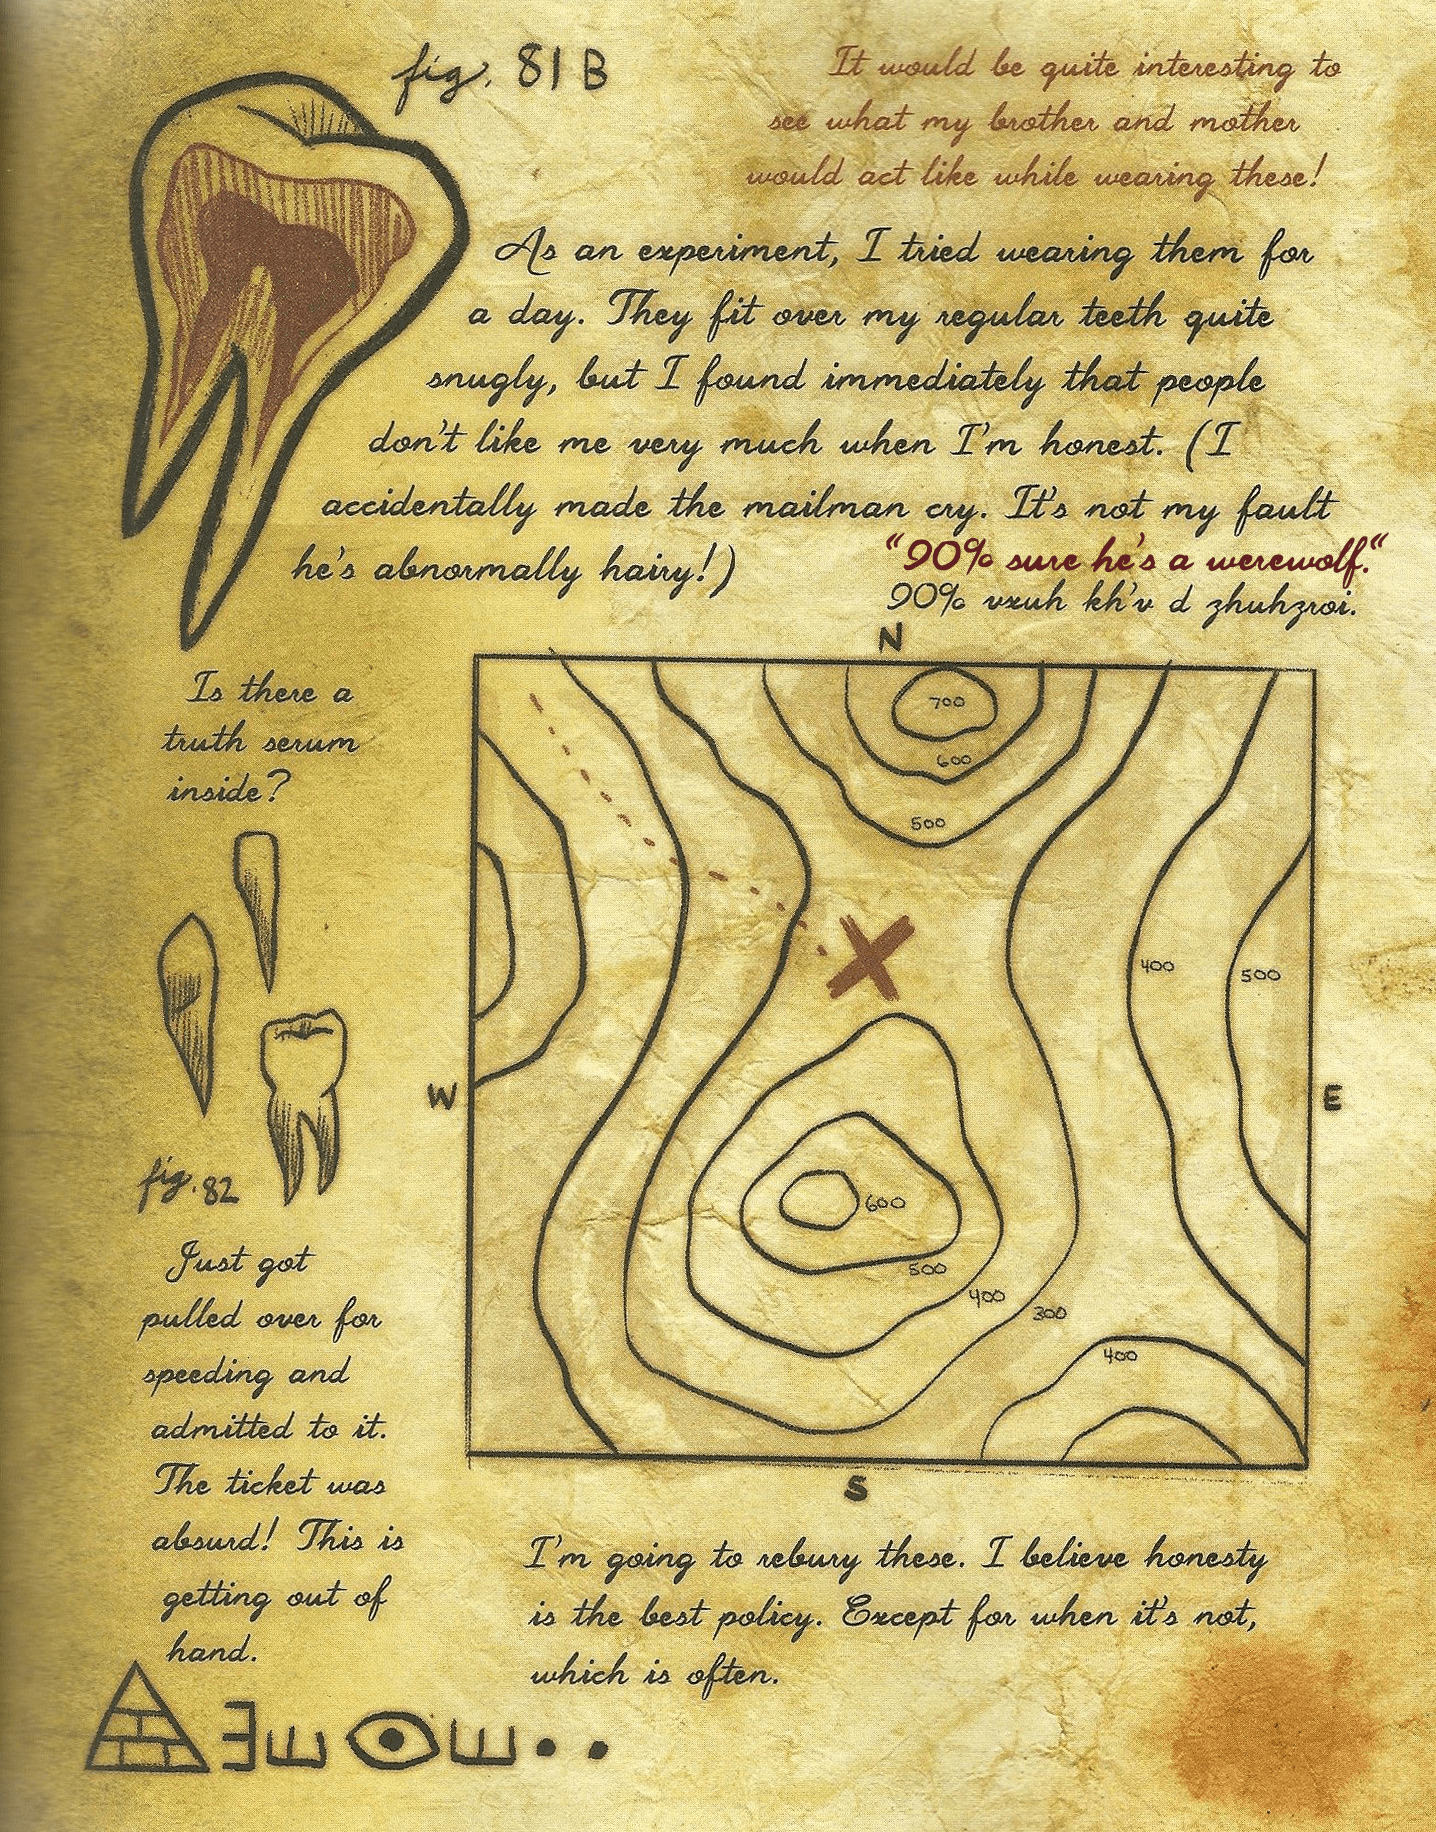 fig. 81 B
It would be quite interesting to
see what my brother and mother
would act like while wearing these!
As an experiment, I tried wearing them for
a day. They fit over my regular teeth quite
snugly, but I found immediately that people
don't like me very much when I'm honest. (I
accidentally made the mailman cry. It's not my fault
he's abnormally hairy!)
"90% sure he's a werewolf."
90% vxuh kh'v d zhuhzroi.
Is there a
truth serum
inside?
fig. 82
Just got
pulled over for
speeding and
admitted to it.
The ticket was
absurd! This is
getting out of
hand.
N
700
600
500
400
500
W
E
600
500
400
300
400
S
I'm going to rebury these. I believe honesty
is the best policy. Except for when it's not,
which is often.